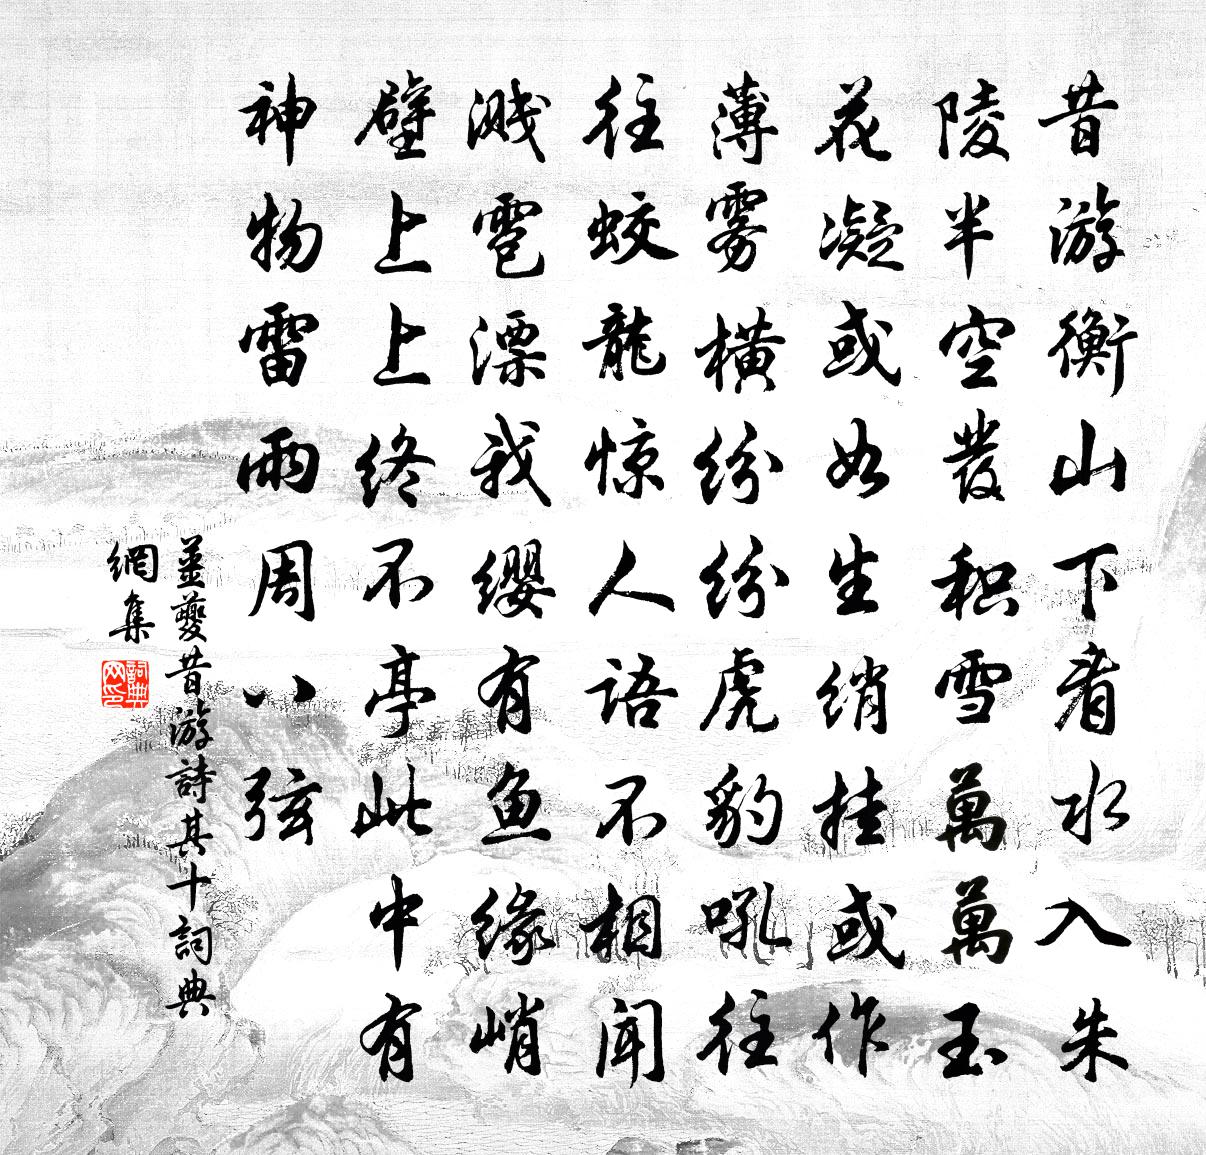 昔游衡山下看水入朱
陵半空發积雪萬萬玉
花凝或如生绡挂或作
薄雾横纷纷虎豹吼往
往蛟龍惊人语不相闻
溅雹漂我缨有鱼缘峭
壁上上终不亭此中有
神物雷雨周八弦
薑夔昔游詩其十詞典
網集
詞典网印